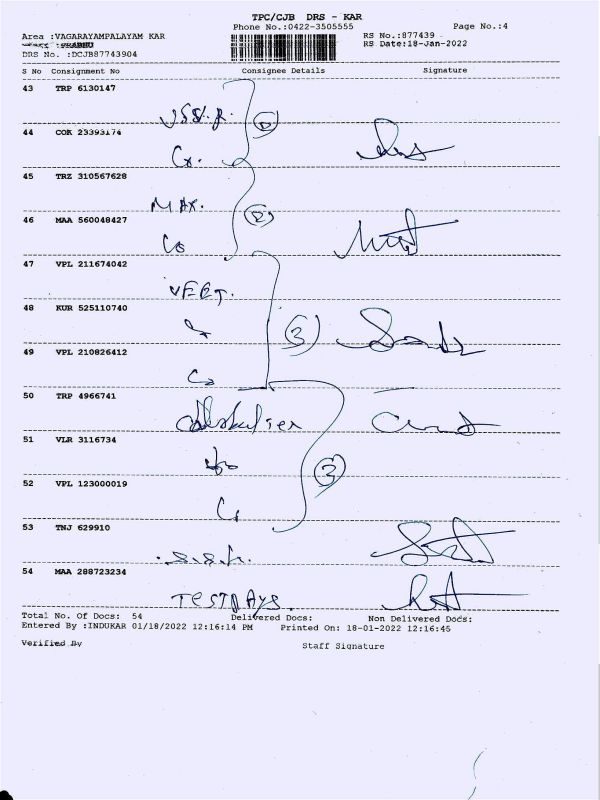 TPC/CJB DRS - KAR
Phone No.:0422-3505555
Page No.:4
Area :VAGARAYAMPALAYAM KAR
RS No.:877439
:PRABHU
RS Date:18-Jan-2022
DRS No. :DCJB87743904
S No Consignment No Consignee Details Signature
43 TRP 6130147
44 COK 23393174
Co.
45 TRZ 310567628
MAX.
(2)
46 MAA 560048427
Co
47 VPL 211674042
VEET.
48 KUR 525110740
(3)
49 VPL 210826412
Co
50 TRP 4966741
51 VLR 3116734
(3)
52 VPL 123000019
53 TNJ 629910
54 MAA 288723234
TESTDAYS.
Total No. Of Docs: 54 Delivered Docs: Non Delivered Docs:
Entered By :INDUKAR 01/18/2022 12:16:14 PM Printed On: 18-01-2022 12:16:45
Verified By
Staff Signature